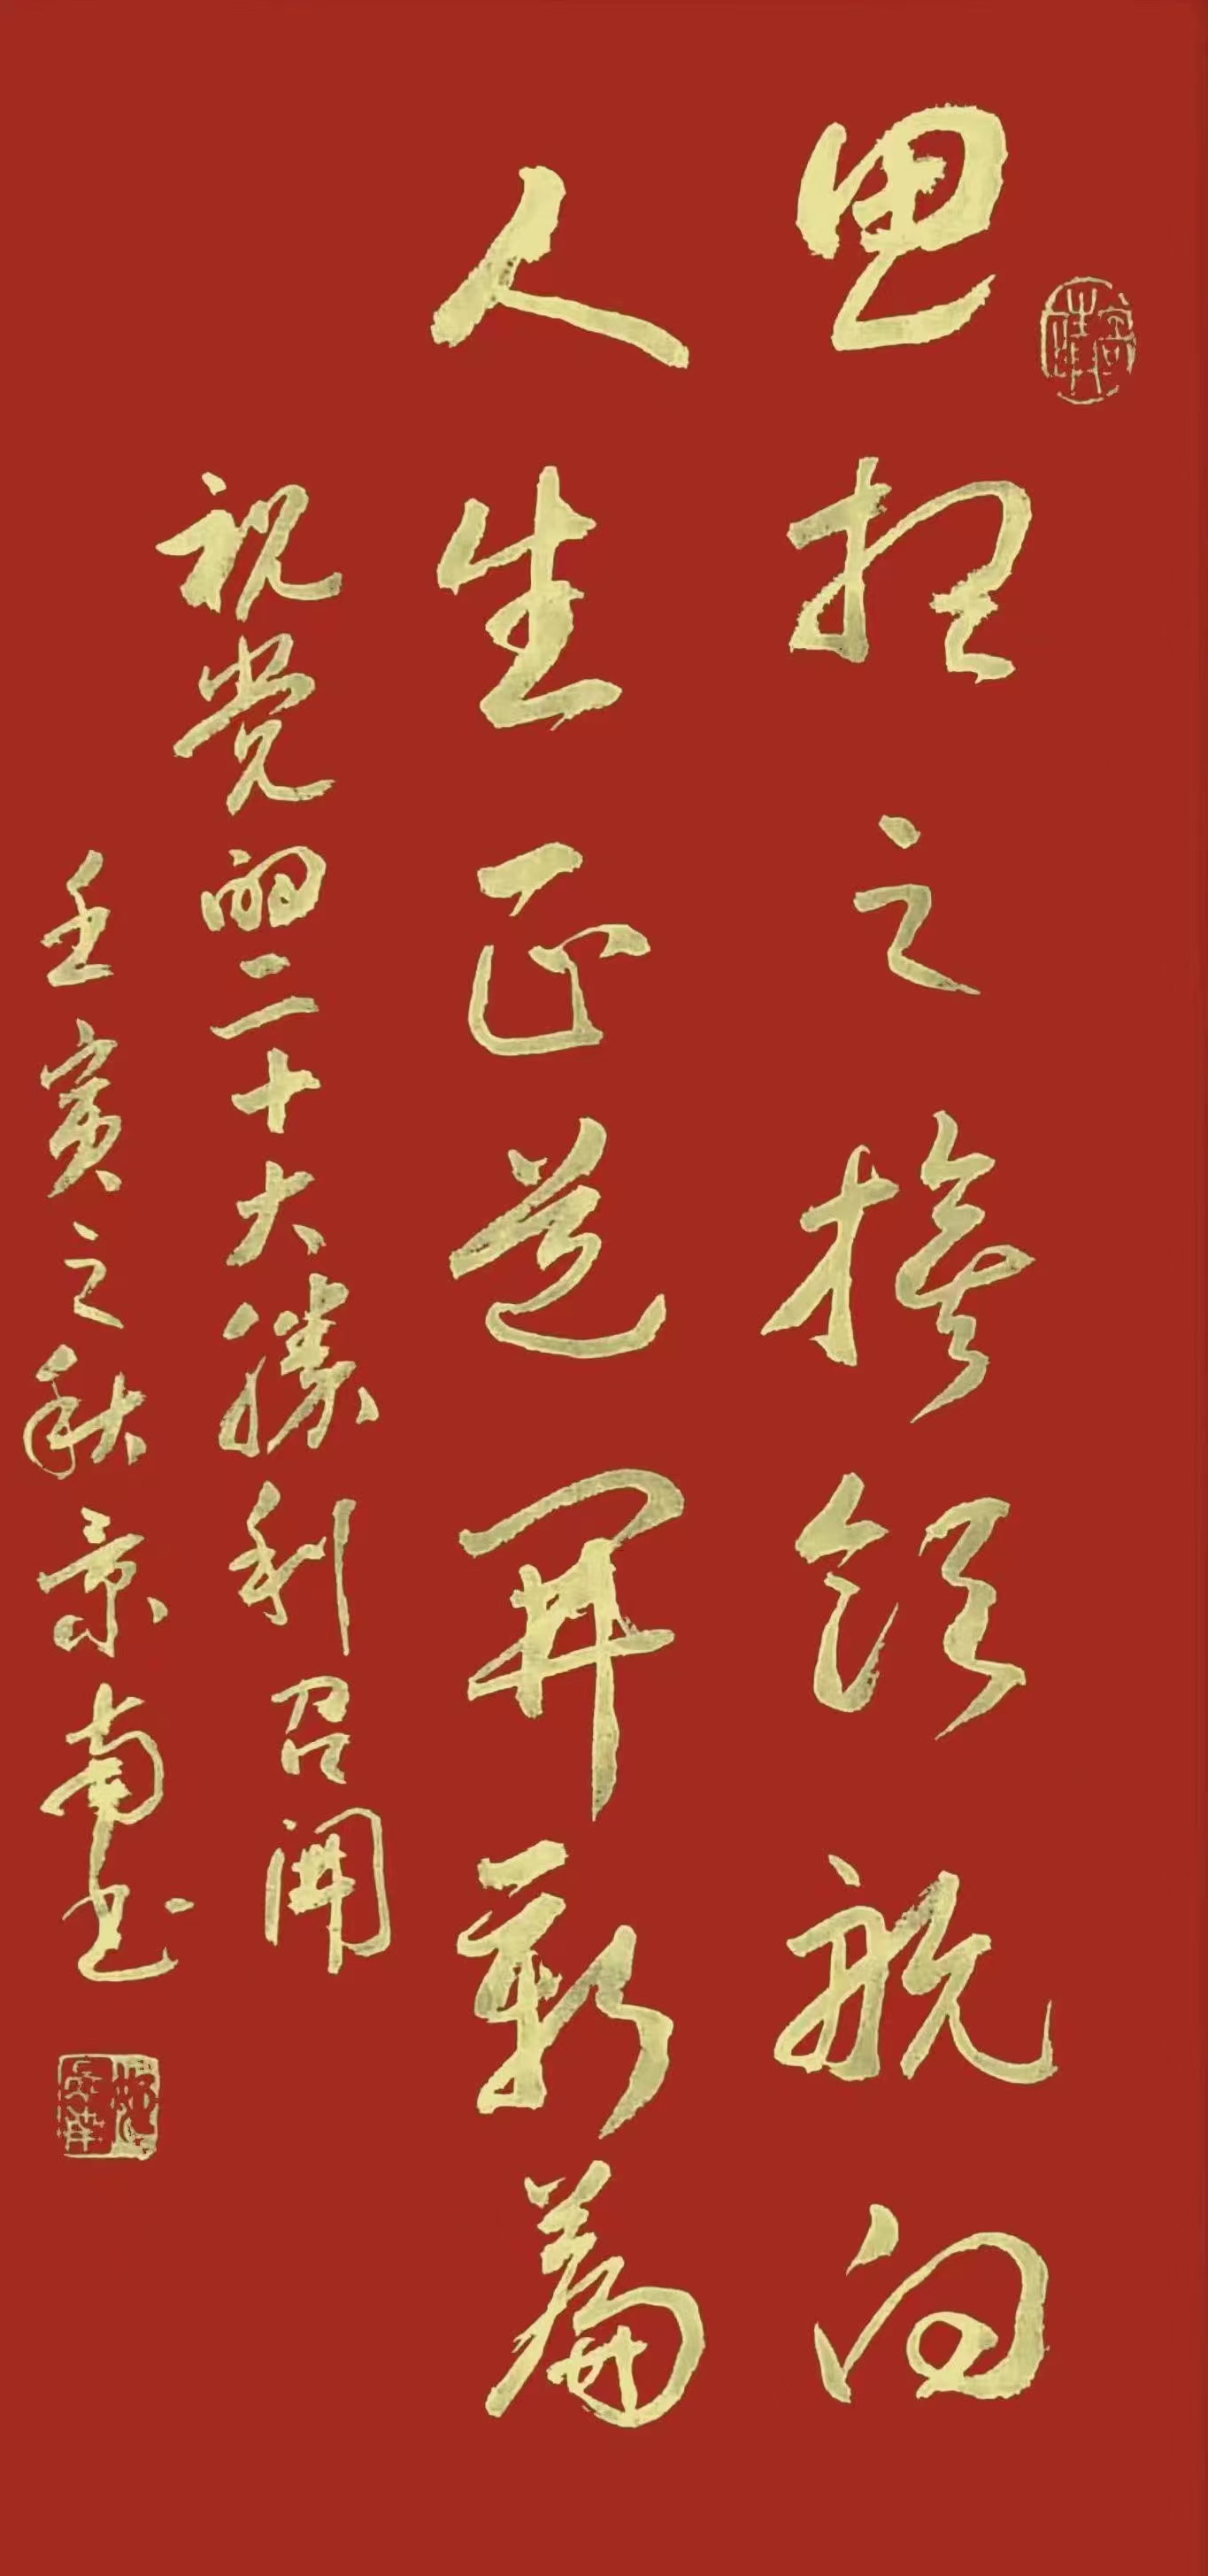 思想之旗领航向
人生正道開新篇
祝党的二十大勝利召開
壬寅之秋景南书